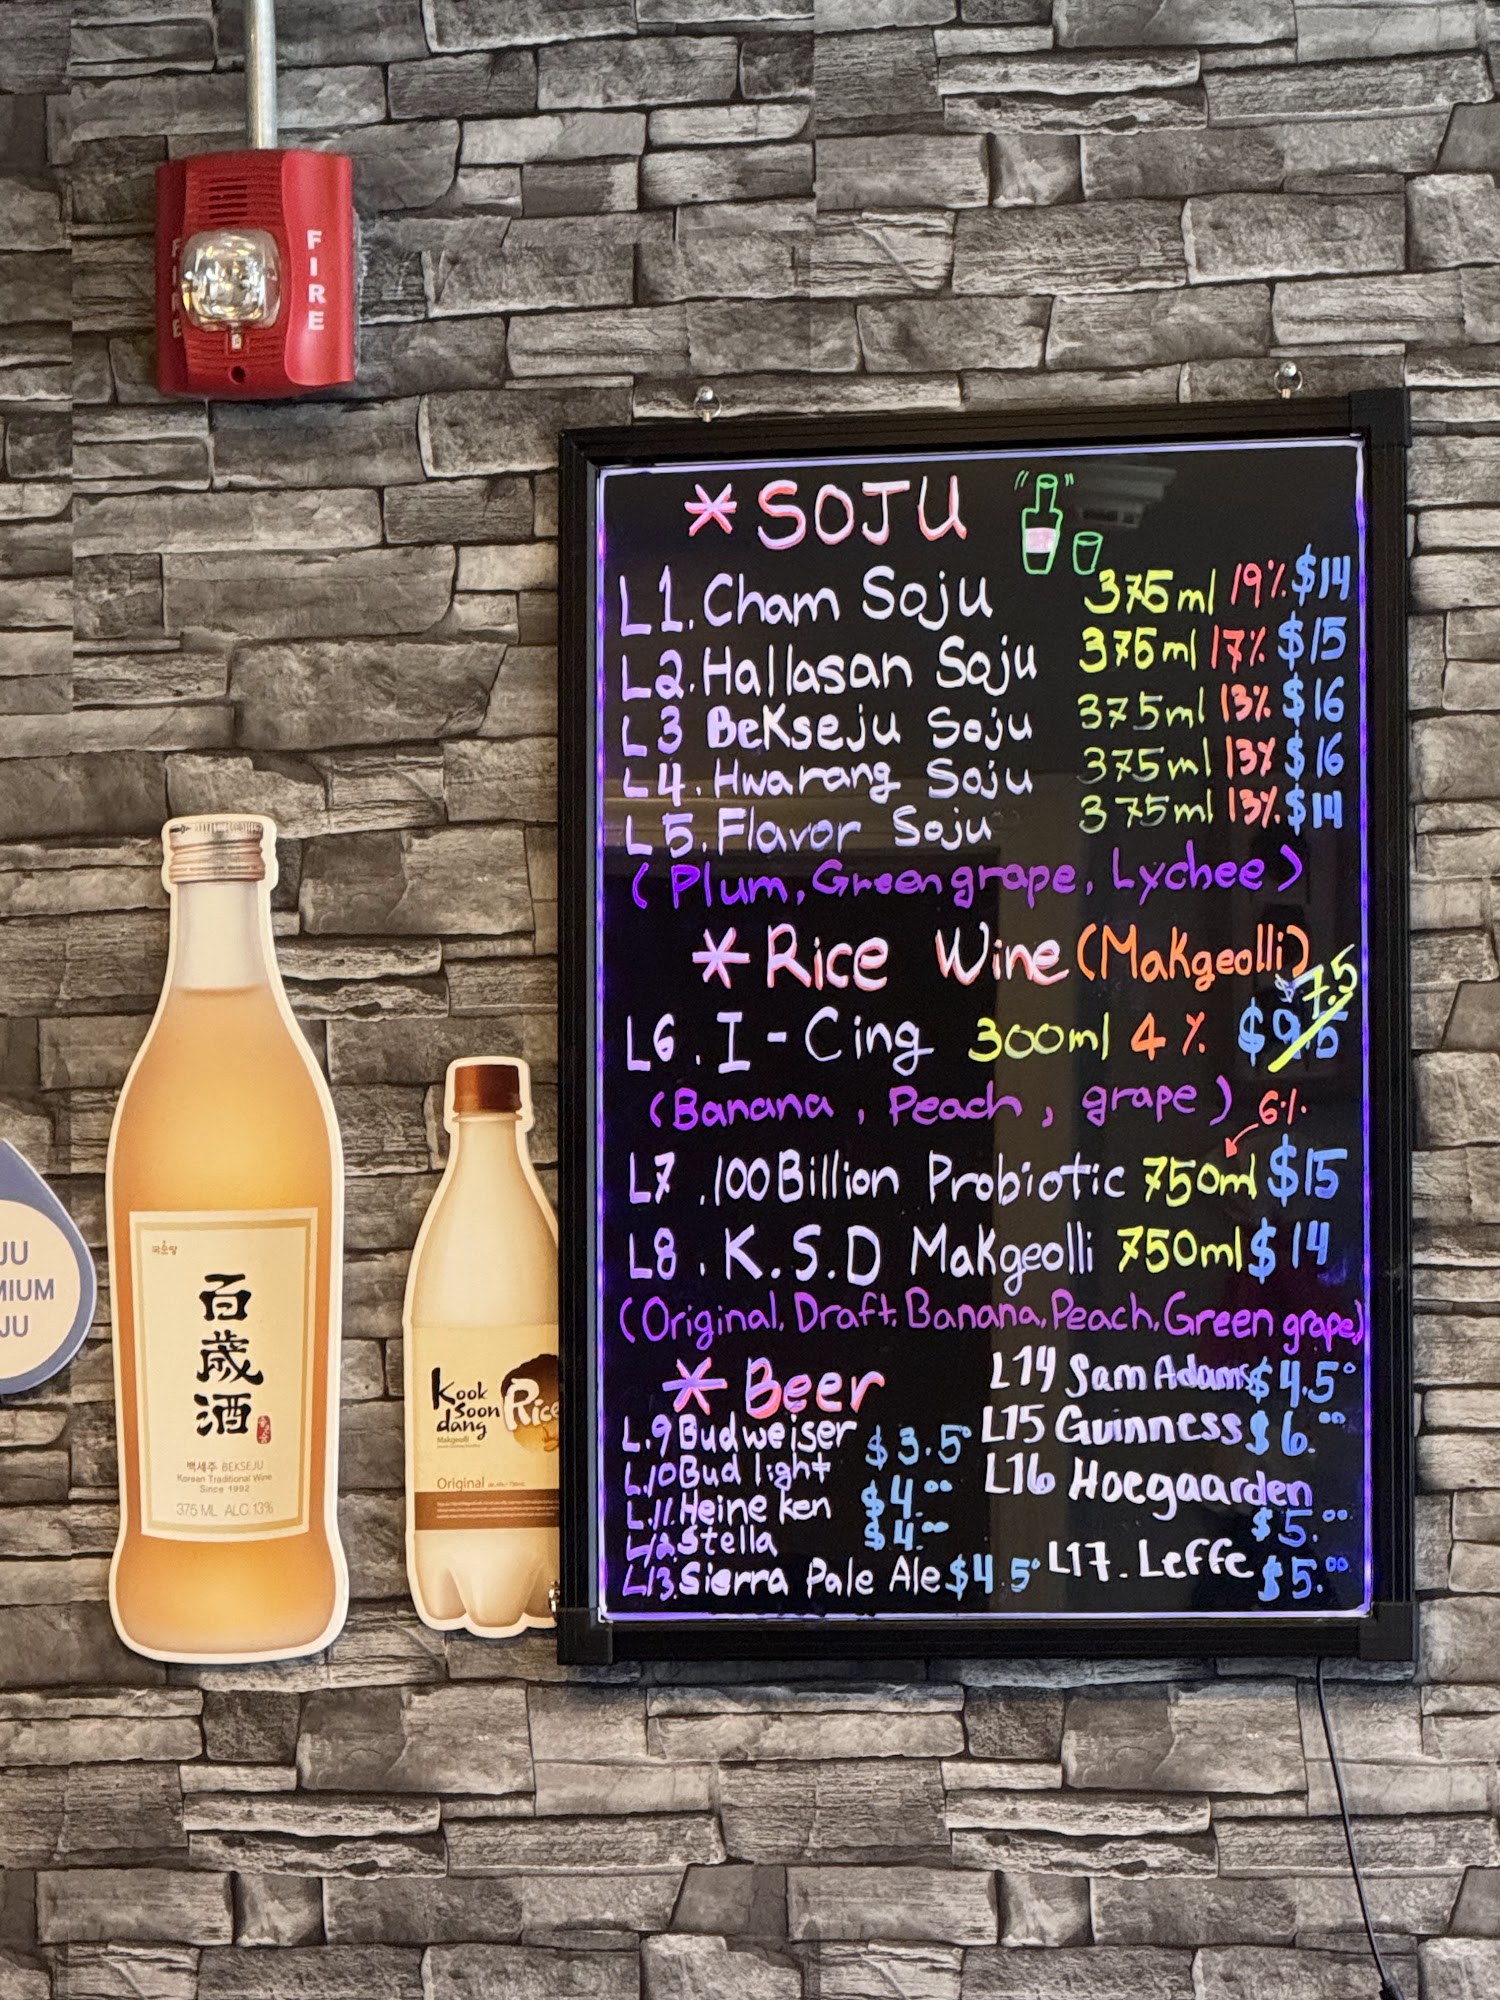 FIRE
FIRE
* SOJU
L1. Cham Soju 375ml 19% $14
L2. Hallasan Soju 375ml 17% $15
L3 Bekseju Soju 375ml 13% $16
L4. Hwarang Soju 375ml 13% $16
L5. Flavor Soju 375ml 13% $14
(Plum, Green grape, Lychee)
* Rice Wine (Makgeolli)
$7.5
L6. I-Cing 300ml 4%
(Banana, Peach, grape) 6%
L7. 100 Billion Probiotic 750ml $15
L8. K.S.D Makgeolli 750ml $14
(Original, Draft, Banana, Peach, Green grape)
* Beer
L.9 Budweiser $3.5⁰
L.10 Bud light
L.11. Heineken $4.⁰⁰
L.12. Stella $4.⁰⁰
L.13. Sierra Pale Ale $4.5⁰
L14 Sam Adams $4.5⁰
L15 Guinness $6.⁰⁰
L16 Hoegaarden
$5.⁰⁰
L17. Leffe $5.⁰⁰
百歲酒
백세주 BEKSEJU
Korean Traditional Wine
Since 1992
375 ML ALC.13%
Kook
Soon
dang
Rice
Makgeolli
Original
JU
MIUM
JU